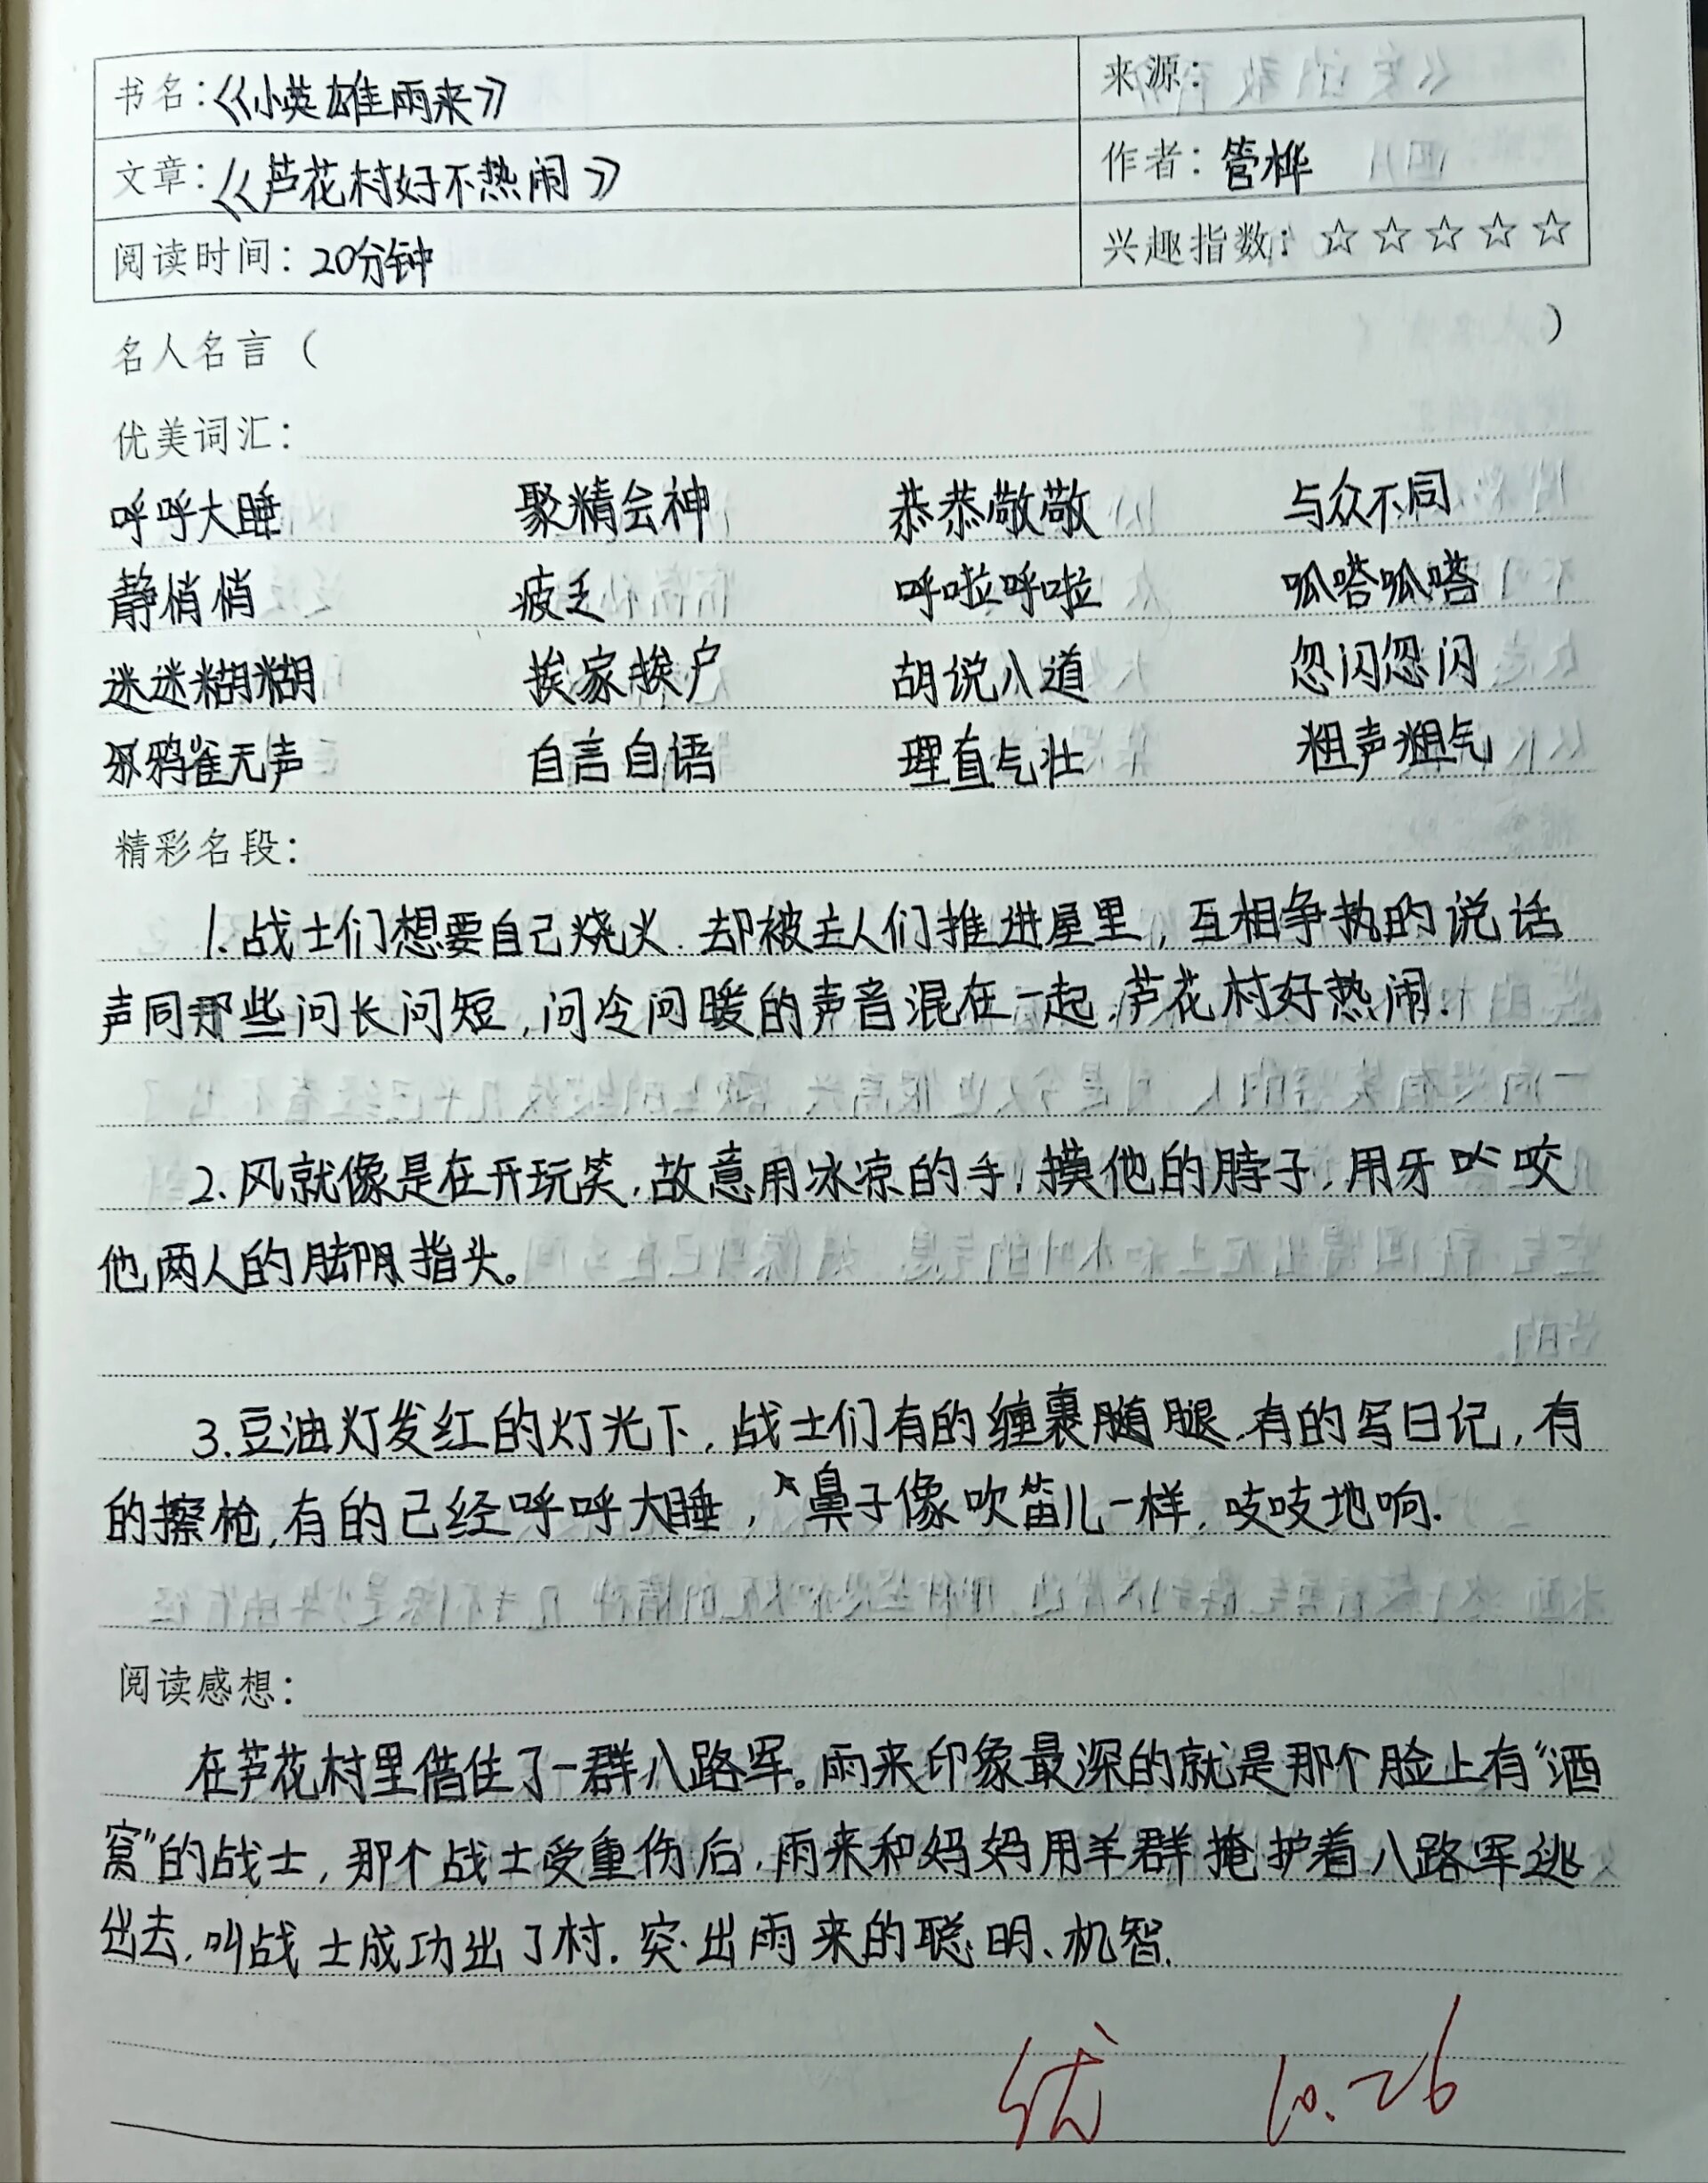 书名：《小英雄雨来》 来源：
文章：《芦花村好不热闹》 作者：管桦
阅读时间：20分钟 兴趣指数：☆☆☆☆☆
名人名言（ ）
优美词汇：
呼呼大睡 聚精会神 恭恭敬敬 与众不同
静悄悄 疲乏 呼啦呼啦 呱嗒呱嗒
迷迷糊糊 挨家挨户 胡说八道 忽闪忽闪
鸦雀无声 自言自语 理直气壮 粗声粗气
精彩名段：
1.战士们想要自己烧火.却被主人们推进屋里，互相争执的说话
声同那些问长问短，问冷问暖的声音混在一起，芦花村好热闹.
2.风就像是在开玩笑，故意用冰凉的手，摸他的脖子，用牙咬
他两人的脚指头。
3.豆油灯发红的灯光下，战士们有的缠裹腿，有的写日记，有
的擦枪，有的已经呼呼大睡，鼻子像吹笛儿一样，吱吱地响.
阅读感想：
在芦花村里借住了一群八路军。雨来印象最深的就是那个脸上有“酒
窝”的战士，那个战士受重伤后，雨来和妈妈用羊群掩护着八路军逃
出去，叫战士成功出了村.突出雨来的聪明、机智.
优 10.26